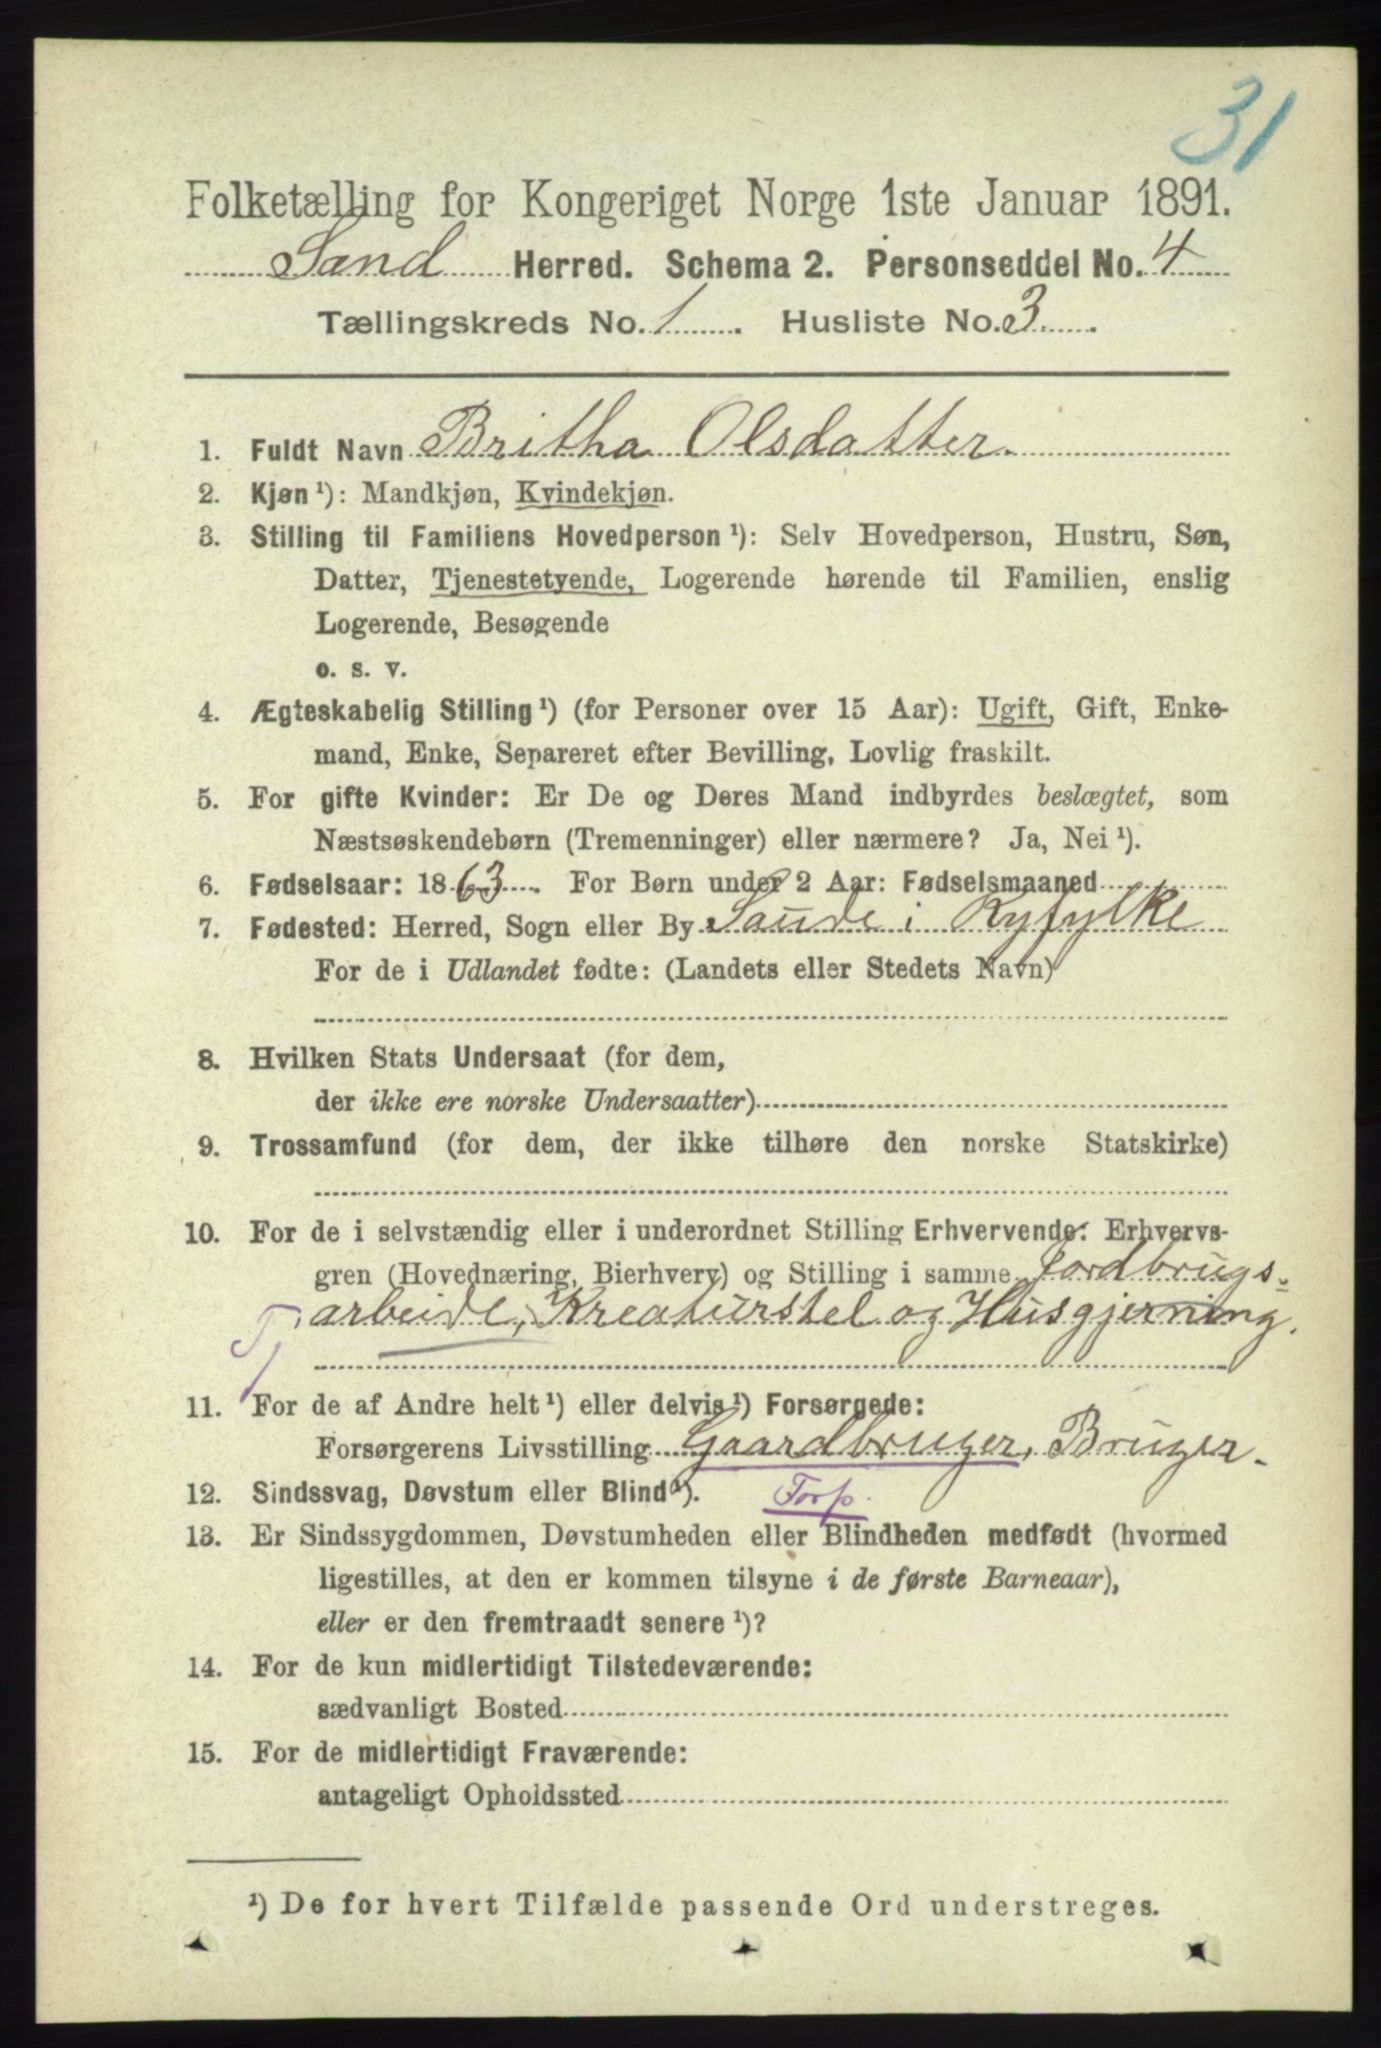 31
Folketælling for Kongeriget Norge 1ste Januar 1891.
Sand Herred. Schema 2. Personseddel No. 4
Tællingskreds No. 1. Husliste No. 3.
1. Fuldt Navn Britha Olsdatter.
2. Kjøn¹): Mandkjøn, Kvindekjøn.
3. Stilling til Familiens Hovedperson¹): Selv Hovedperson, Hustru, Søn,
Datter, Tjenestetyende, Logerende hørende til Familien, enslig
Logerende, Besøgende
o. s. v.
4. Ægteskabelig Stilling¹) (for Personer over 15 Aar): Ugift, Gift, Enke-
mand, Enke, Separeret efter Bevilling, Lovlig fraskilt.
5. For gifte Kvinder: Er De og Deres Mand indbyrdes beslægtet, som
Næstsøskendebørn (Tremenninger) eller nærmere? Ja, Nei¹).
6. Fødselsaar: 1863. For Børn under 2 Aar: Fødselsmaaned
7. Fødested: Herred, Sogn eller By Saude i Ryfylke
For de i Udlandet fødte: (Landets eller Stedets Navn)
8. Hvilken Stats Undersaat (for dem,
der ikke ere norske Undersaatter)
9. Trossamfund (for dem, der ikke tilhøre den norske Statskirke)
10. For de i selvstændig eller i underordnet Stilling Erhvervende: Erhvervs-
gren (Hovednæring, Bierhverv) og Stilling i samme Jordbrugs-
Tj arbeide, Kreaturstel og Husgjerning.
11. For de af Andre helt¹) eller delvis¹) Forsørgede:
Forsørgerens Livsstilling Gaardbruger, Bruger.
12. Sindssvag, Døvstum eller Blind¹). Forp.
13. Er Sindssygdommen, Døvstumheden eller Blindheden medfødt (hvormed
ligestilles, at den er kommen tilsyne i de første Barneaar),
eller er den fremtraadt senere¹)?
14. For de kun midlertidigt Tilstedeværende:
sædvanligt Bosted
15. For de midlertidigt Fraværende:
antageligt Opholdssted
¹) De for hvert Tilfælde passende Ord understreges.